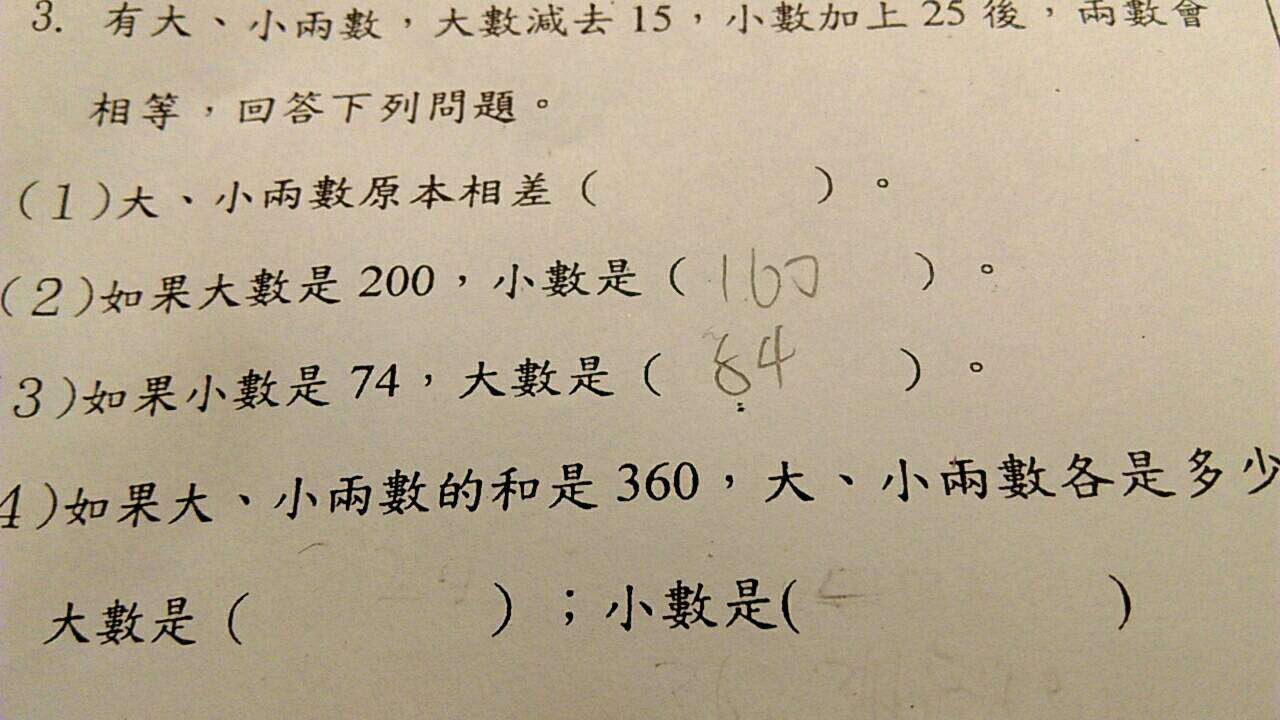 3. 有大、小兩數，大數減去 15，小數加上 25 後，兩數會
相等，回答下列問題。
(1)大、小兩數原本相差（　　　）。
(2)如果大數是 200，小數是（ 160 ）。
3)如果小數是 74，大數是（ 84 ）。
4)如果大、小兩數的和是 360，大、小兩數各是多少
大數是（　　　）；小數是(　　　)